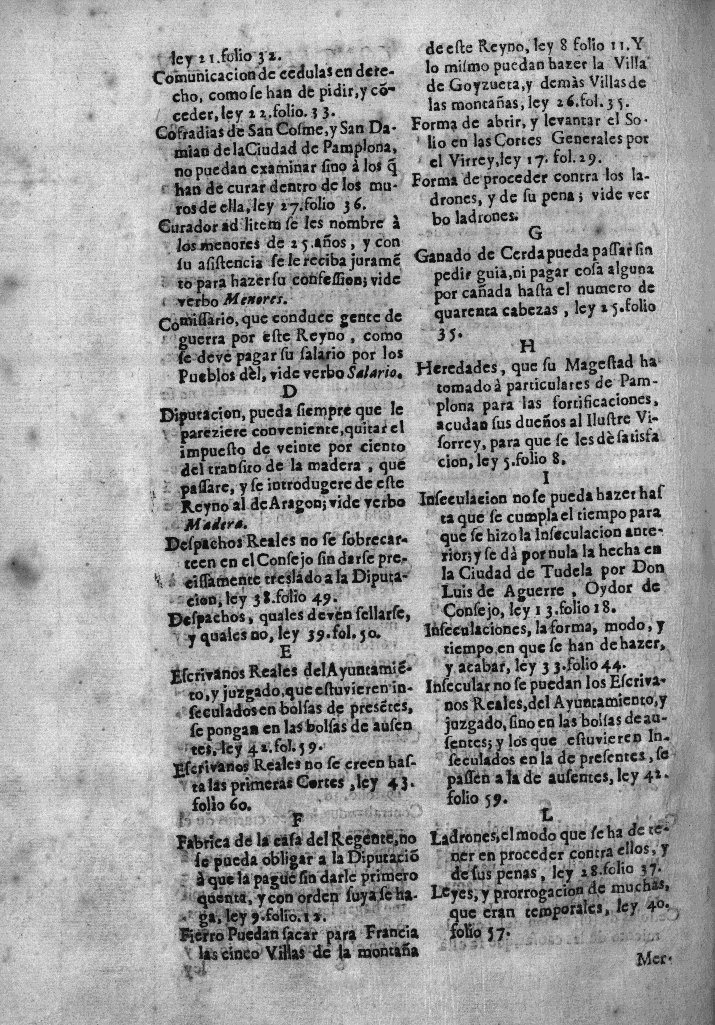 ley 21. folio 32.
Comunicacion de cedulas en dere-
cho, como se han de pidir, y cō-
ceder, ley 22. folio. 33.
Cofradias de San Cosme, y San Da-
mian de la Ciudad de Pamplona,
no puedan examinar sino à los q̃
han de curar dentro de los mu-
ros de ella, ley 27. folio 36.
Curador ad litem se les nombre à
los menores de 25. años, y con
su asistencia se le reciba juramē
to para hazer su confession; vide
verbo Menores.
Comissario, que conduce gente de
guerra por este Reyno, como
se deve pagar su salario por los
Pueblos dèl, vide verbo Salario.
D
Diputacion, pueda siempre que le
pareziere conveniente, quitar el
impuesto de veinte por ciento
del transito de la madera, que
passare, y se introdugere de este
Reyno al de Aragon; vide verbo
Madera.
Despachos Reales no se sobrecar-
teen en el Consejo sin darse pre-
cissamente treslado a la Diputa-
cion, ley 38. folio 49.
Despachos, quales deven sellarse,
y quales no, ley 39. fol. 50.
E
Escrivanos Reales del Ayuntamiē-
to, y juzgado, que estuvieren in-
seculados en bolsas de presētes,
se pongan en las bolsas de ausen
tes, ley 42. fol. 59.
Escrivanos Reales no se creen has-
ta las primeras Cortes, ley 43.
folio 60.
F
Fabrica de la casa del Regente, no
se pueda obligar a la Diputaciō
à que la pague sin darle primero
quenta, y con orden suya se ha-
ga, ley 9. folio. 12.
Fierro Puedan sacar para Francia
las cinco Villas de la montaña
de este Reyno, ley 8 folio 11. Y
lo mismo puedan hazer la Villa
de Goyzueta, y demàs Villas de
las montañas, ley 26. fol. 35.
Forma de abrir, y levantar el So-
lio en las Cortes Generales por
el Virrey, ley 17. fol. 29.
Forma de proceder contra los la-
drones, y de su pena; vide ver
bo ladrones.
G
Ganado de Cerda pueda passar sin
pedir guia, ni pagar cosa alguna
por cañada hasta el numero de
quarenta cabezas, ley 25. folio
35.
H
Heredades, que su Magestad ha
tomado à particulares de Pam-
plona para las fortificaciones,
acudan sus dueños al Ilustre Vi-
sorrey, para que se les dè satisfa
cion, ley 5. folio 8.
I
Inseculacion no se pueda hazer has
ta que se cumpla el tiempo para
que se hizo la Inseculacion ante-
rior; y se dà por nula la hecha en
la Ciudad de Tudela por Don
Luis de Aguerre, Oydor de
Consejo, ley 13. folio 18.
Inseculaciones, la forma, modo, y
tiempo en que se han de hazer,
y acabar, ley 33. folio 44.
Insecular no se puedan los Escriva-
nos Reales, del Ayuntamiento, y
juzgado, sino en las bolsas de au-
sentes; y los que estuvieren In-
seculados en la de presentes, se
passen a la de ausentes, ley 42.
folio 59.
L
Ladrones, el modo que se ha de te-
ner en proceder contra ellos, y
de sus penas, ley 28. folio 37.
Leyes, y prorrogacion de muchas,
que eran temporales, ley 40.
folio 57.
Mer-